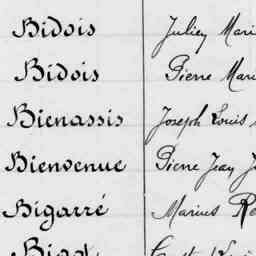 Bidois Julien Mari
Bidois Pierre Mari
Bienassis Joseph Louis
Bienvenue Pierre Jean J
Bigarré Marius Re
Bigot